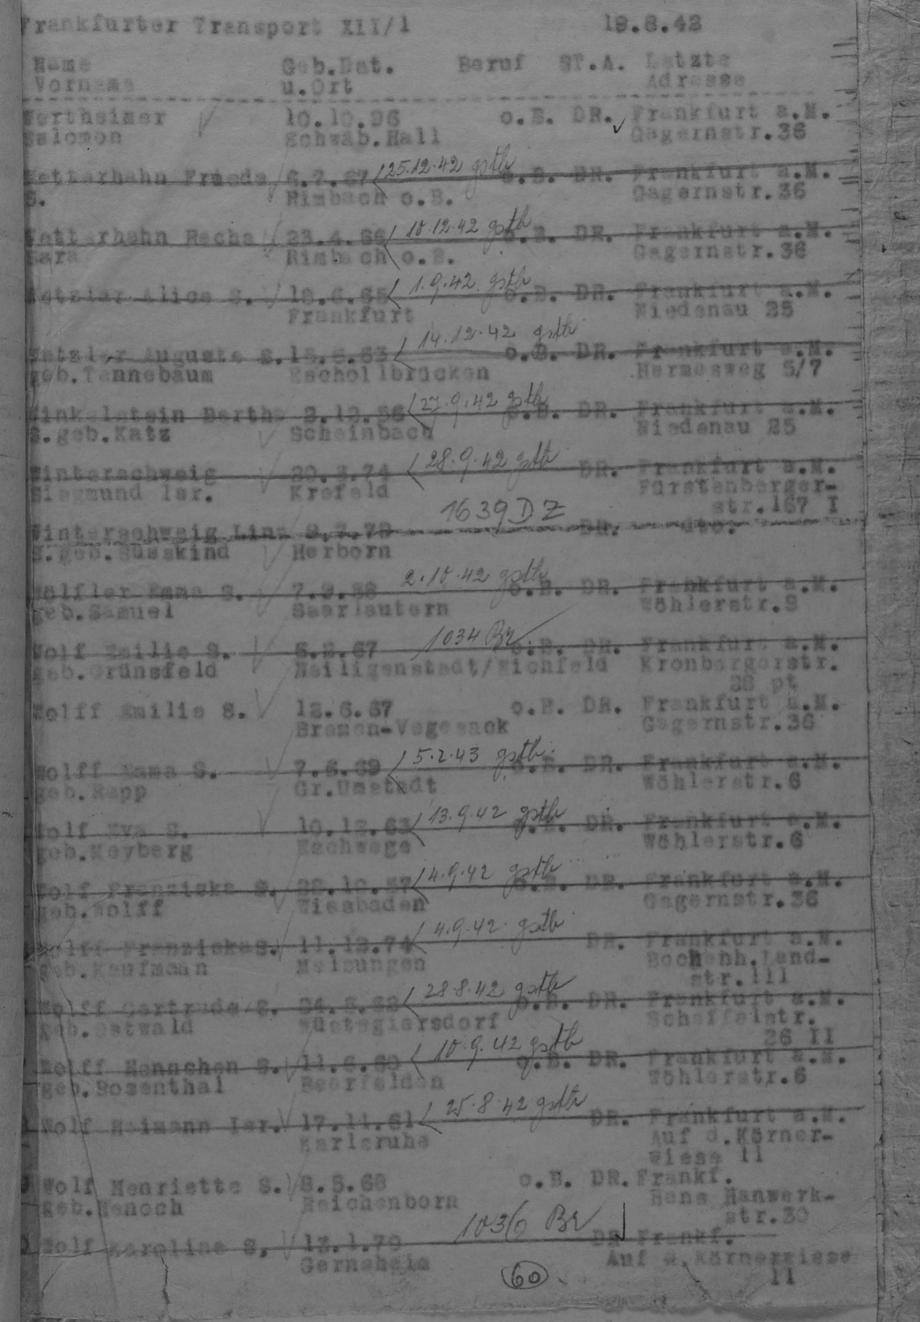 Frankfurter Transport XII/1 19.8.42
Name Geb.Dat. Beruf ST.A. Letzte
Vorname u.Ort Adresse
Wertheimer 10.10.96 o.B. DR. Frankfurt a.M.
Salomon Schwäb.Hall Gagernstr.36
Wetterhahn Frieda 6.7.67 25.12.42 gstb o.B. DR. Frankfurt a.M.
S. Rimbach o.B. Gagernstr.36
Wetterhahn Recha 23.4.66 10.12.42 gstb o.B. DR. Frankfurt a.M.
Sara Rimbach o.B. Gagernstr.36
Wetzlar Alice S. 18.6.65 1.9.42 gstb o.B. DR. Frankfurt a.M.
Frankfurt Niedenau 25
14.12.42 gstb
Wetzler Auguste S. 15.5.63 o.B. DR. Frankfurt a.M.
geb.Tannebaum Eschollbrücken Hermesweg 5/7
Winkelstein Bertha 2.12.56 27.9.42 gstb o.B. DR. Frankfurt a.M.
S.geb.Katz Scheinbach Niedenau 25
Winterschweig 20.3.74 28.9.42 gstb DR. Frankfurt a.M.
Siegmund Isr. Krefeld Fürstenberger-
str.167 I
1639 DZ
Winterschweig Lina DR. dto.
S.geb.Süsskind Herborn
Wölfler Emma S. 7.9.88 2.10.42 gstb o.B. DR. Frankfurt a.M.
geb.Samuel Saarlautern Wöhlerstr.8
Wolf Emilie S. 5.2.67 1034 Br o.B. DR. Frankfurt a.M.
geb.Grünsfeld Heiligenstadt/Eichfeld Kronbergerstr.
38 pt
Wolff Emilie S. 12.6.67 o.B. DR. Frankfurt a.M.
Bremen-Vegesack Gagernstr.36
Wolff Emma S. 7.6.69 5.2.43 gstb. o.B. DR. Frankfurt a.M.
geb.Rapp Gr.Umstadt Wöhlerstr.6
Wolf Eva S. 10.12.63 13.9.42 gstb o.B. DR. Frankfurt a.M.
geb.Meyberg Eschwege Wöhlerstr.6
Wolf Franziska S. 22.10.57 4.9.42 gstb o.B. DR. Frankfurt a.M.
geb.Wolff Wiesbaden Gagernstr.36
Wolff Franziska S. 11.12.74 4.9.42 gstb DR. Frankfurt a.M.
geb.Kaufmann Melsungen Bockenh.Land-
str.111
Wolff Gertrude S. 24.5.62 28.8.42 gstb o.B. DR. Frankfurt a.M.
geb.Ostwald Wüstegiersdorf Scheffelstr.
26 II
Wolff Hannchen S. 11.6.60 10.9.42 gstb o.B. DR. Frankfurt a.M.
geb.Rosenthal Beerfelden Wöhlerstr.6
Wolf Heimann Isr. 17.11.61 25.8.42 gstb DR. Frankfurt a.M.
Karlsruhe Auf d.Körner-
wiese 11
Wolf Henriette S. 8.5.68 o.B. DR. Frankf.
geb.Henoch Reichenborn Hans Hanwerk-
str.30
1036 Br
Wolf Karoline S. 13.1.79 DR Frankf.
Gernsheim Auf d.Körnerwiese
11
60